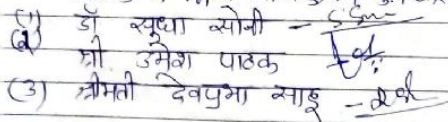 (1) डॉ सुधा सोनी -
(2) श्री उमेश पाठक
(3) श्रीमती देवप्रभा साहू -